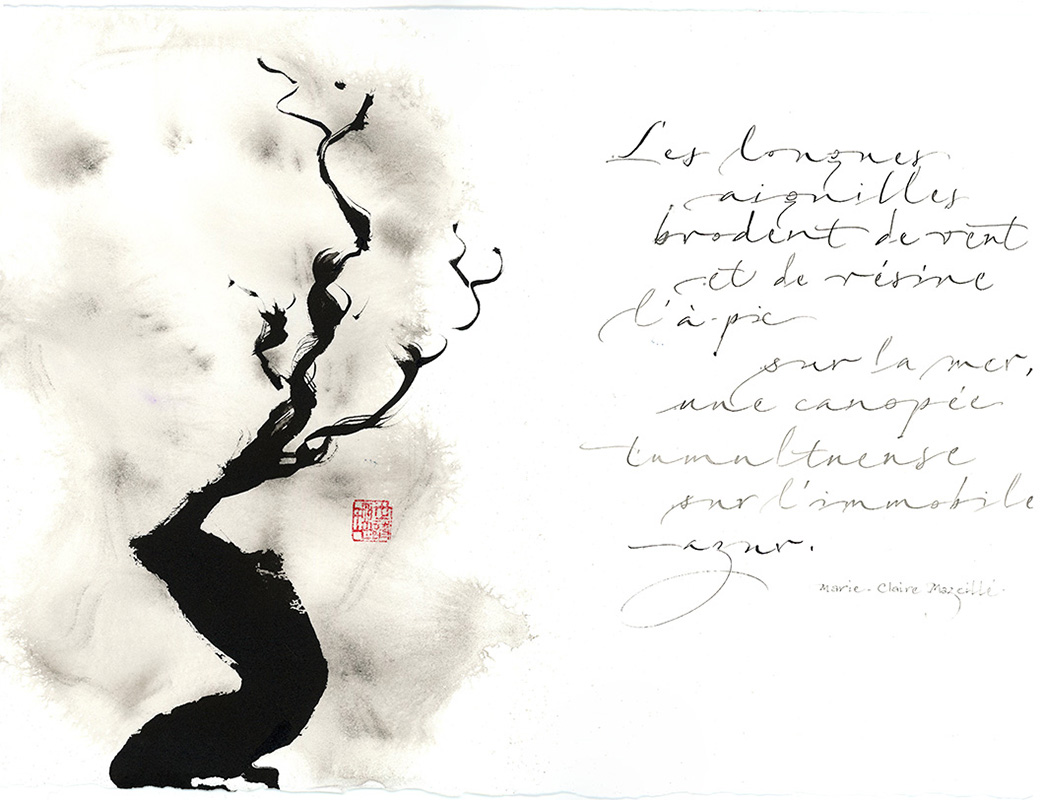 Les longues
aiguilles
brodent de vent
et de résine
l'à-pic
sur la mer,
une canopée
tumultueuse
sur l'immobile
azur.
Marie-Claire Mazeillé